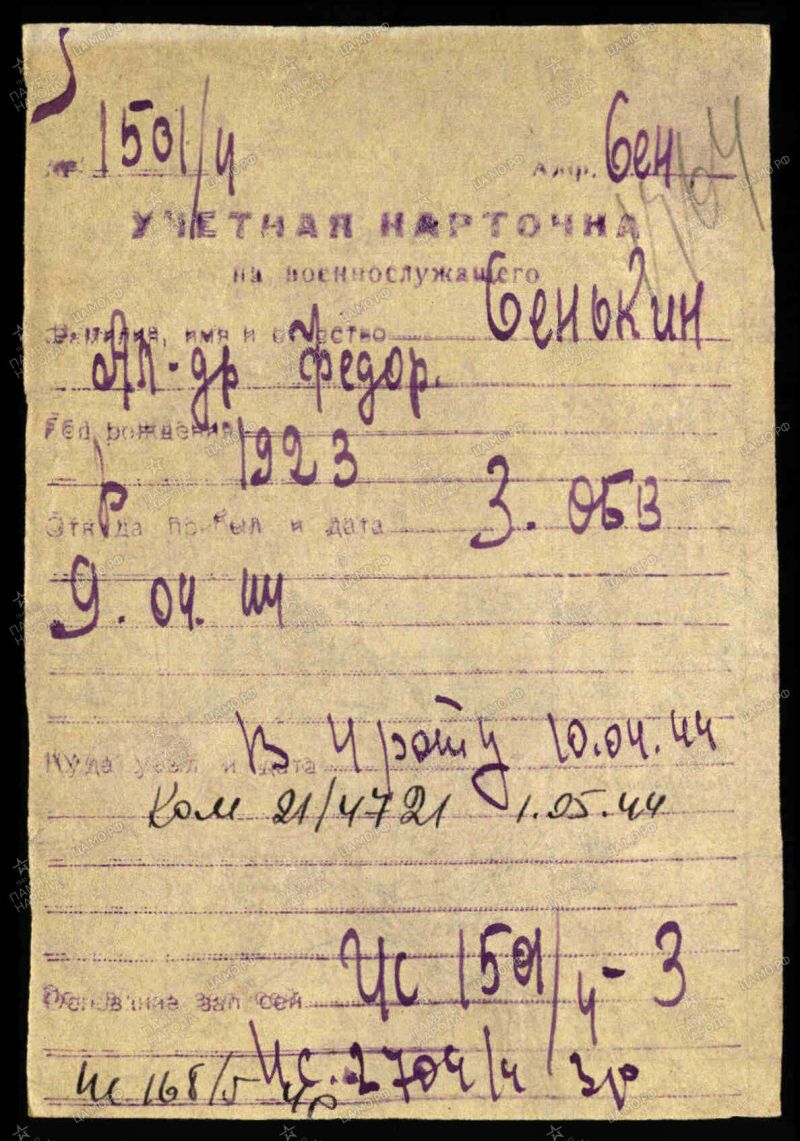 № 1501/4 Алф. Сен
УЧЕТНАЯ КАРТОЧКА
на военнослужащего
Фамилия, имя и отчество Сенькин
Ал-др Федор.
Год рождения
р 1923
Откуда прибыл и дата 3. ОБВ
9. 04. 44
Куда убыл и дата В 4 роту 10.04.44
Ком 21/4721 1.05.44
Основание записей Ис 1501/4-3
Ис. 2704/4 3р
Ис 168/5 4р